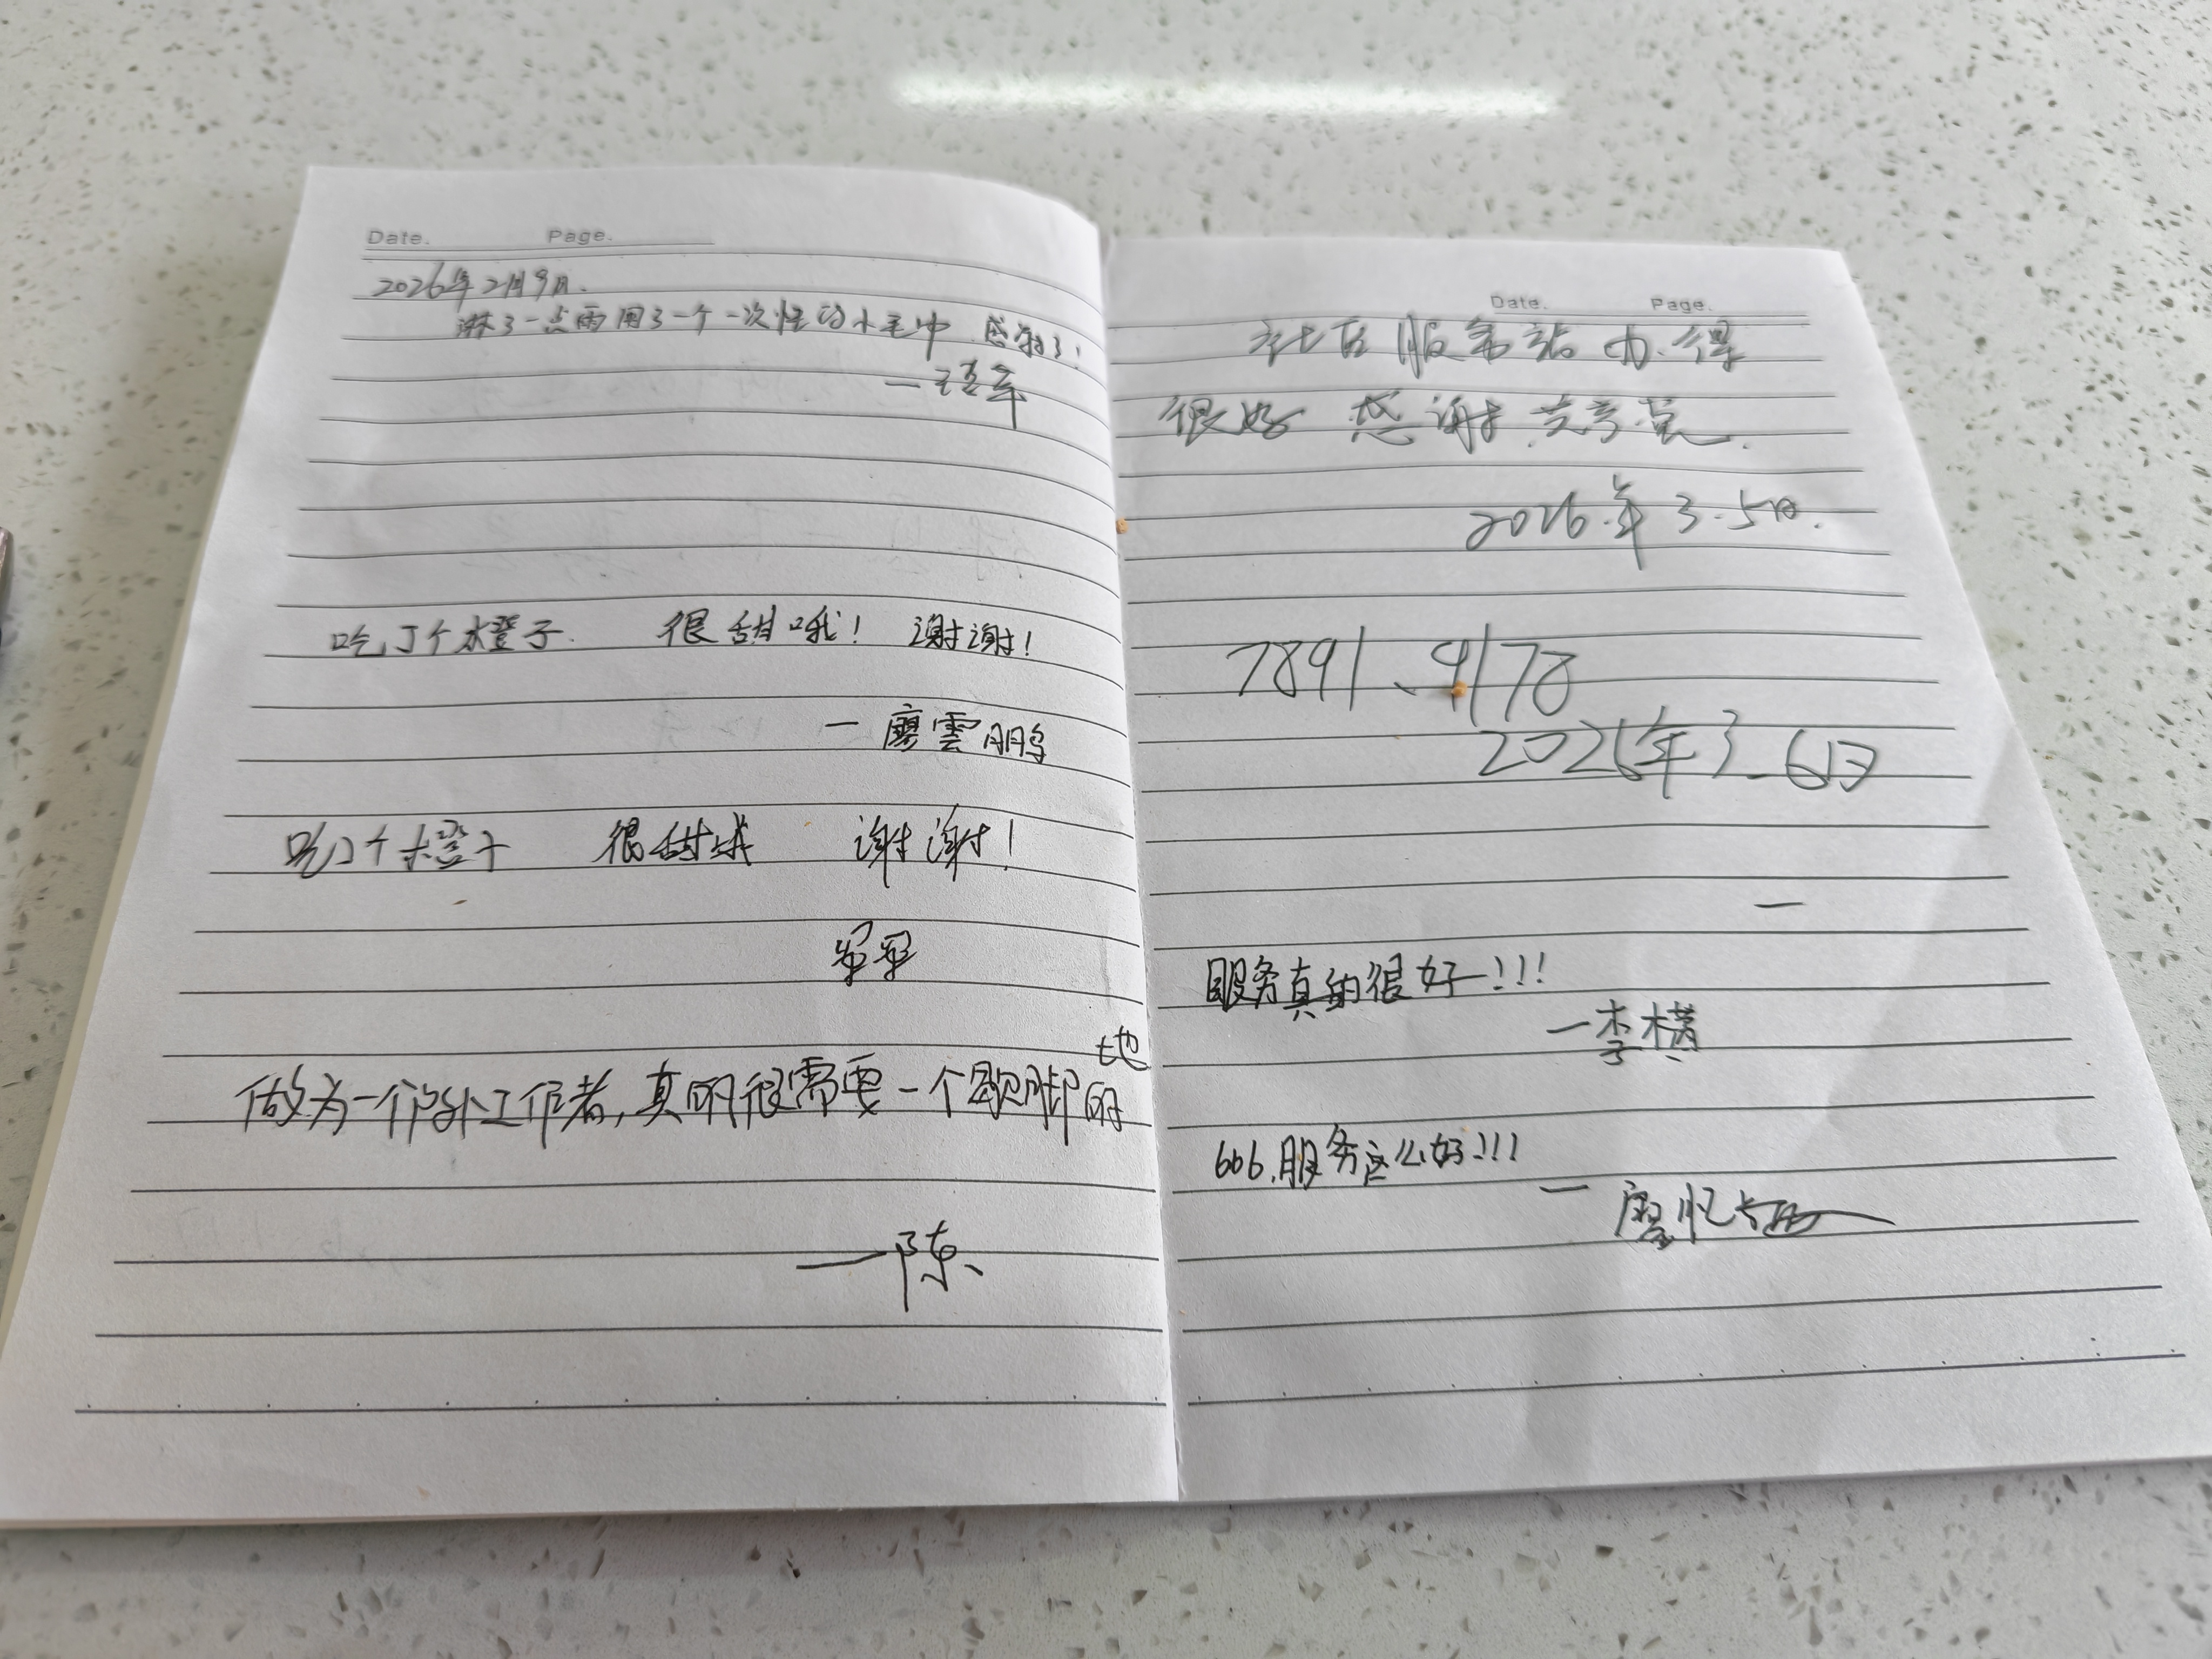 Date. Page.
2026年2月9日.
淋了一点雨用了一个一次性的小毛巾 感谢了!
吃了个橙子. 很甜哦! 谢谢!
一廖雲鹏
吃了个橙子 很甜哦 谢谢!
军军
地
做为一个户外工作者,真的很需要一个歇脚的
一陈
Date. Page.
社区服务站办得
很好 感谢
2026.年3.5日.
7891、4178
2026年3_6日
一
服务真的很好!!!
一李横
666,服务这么好!!!